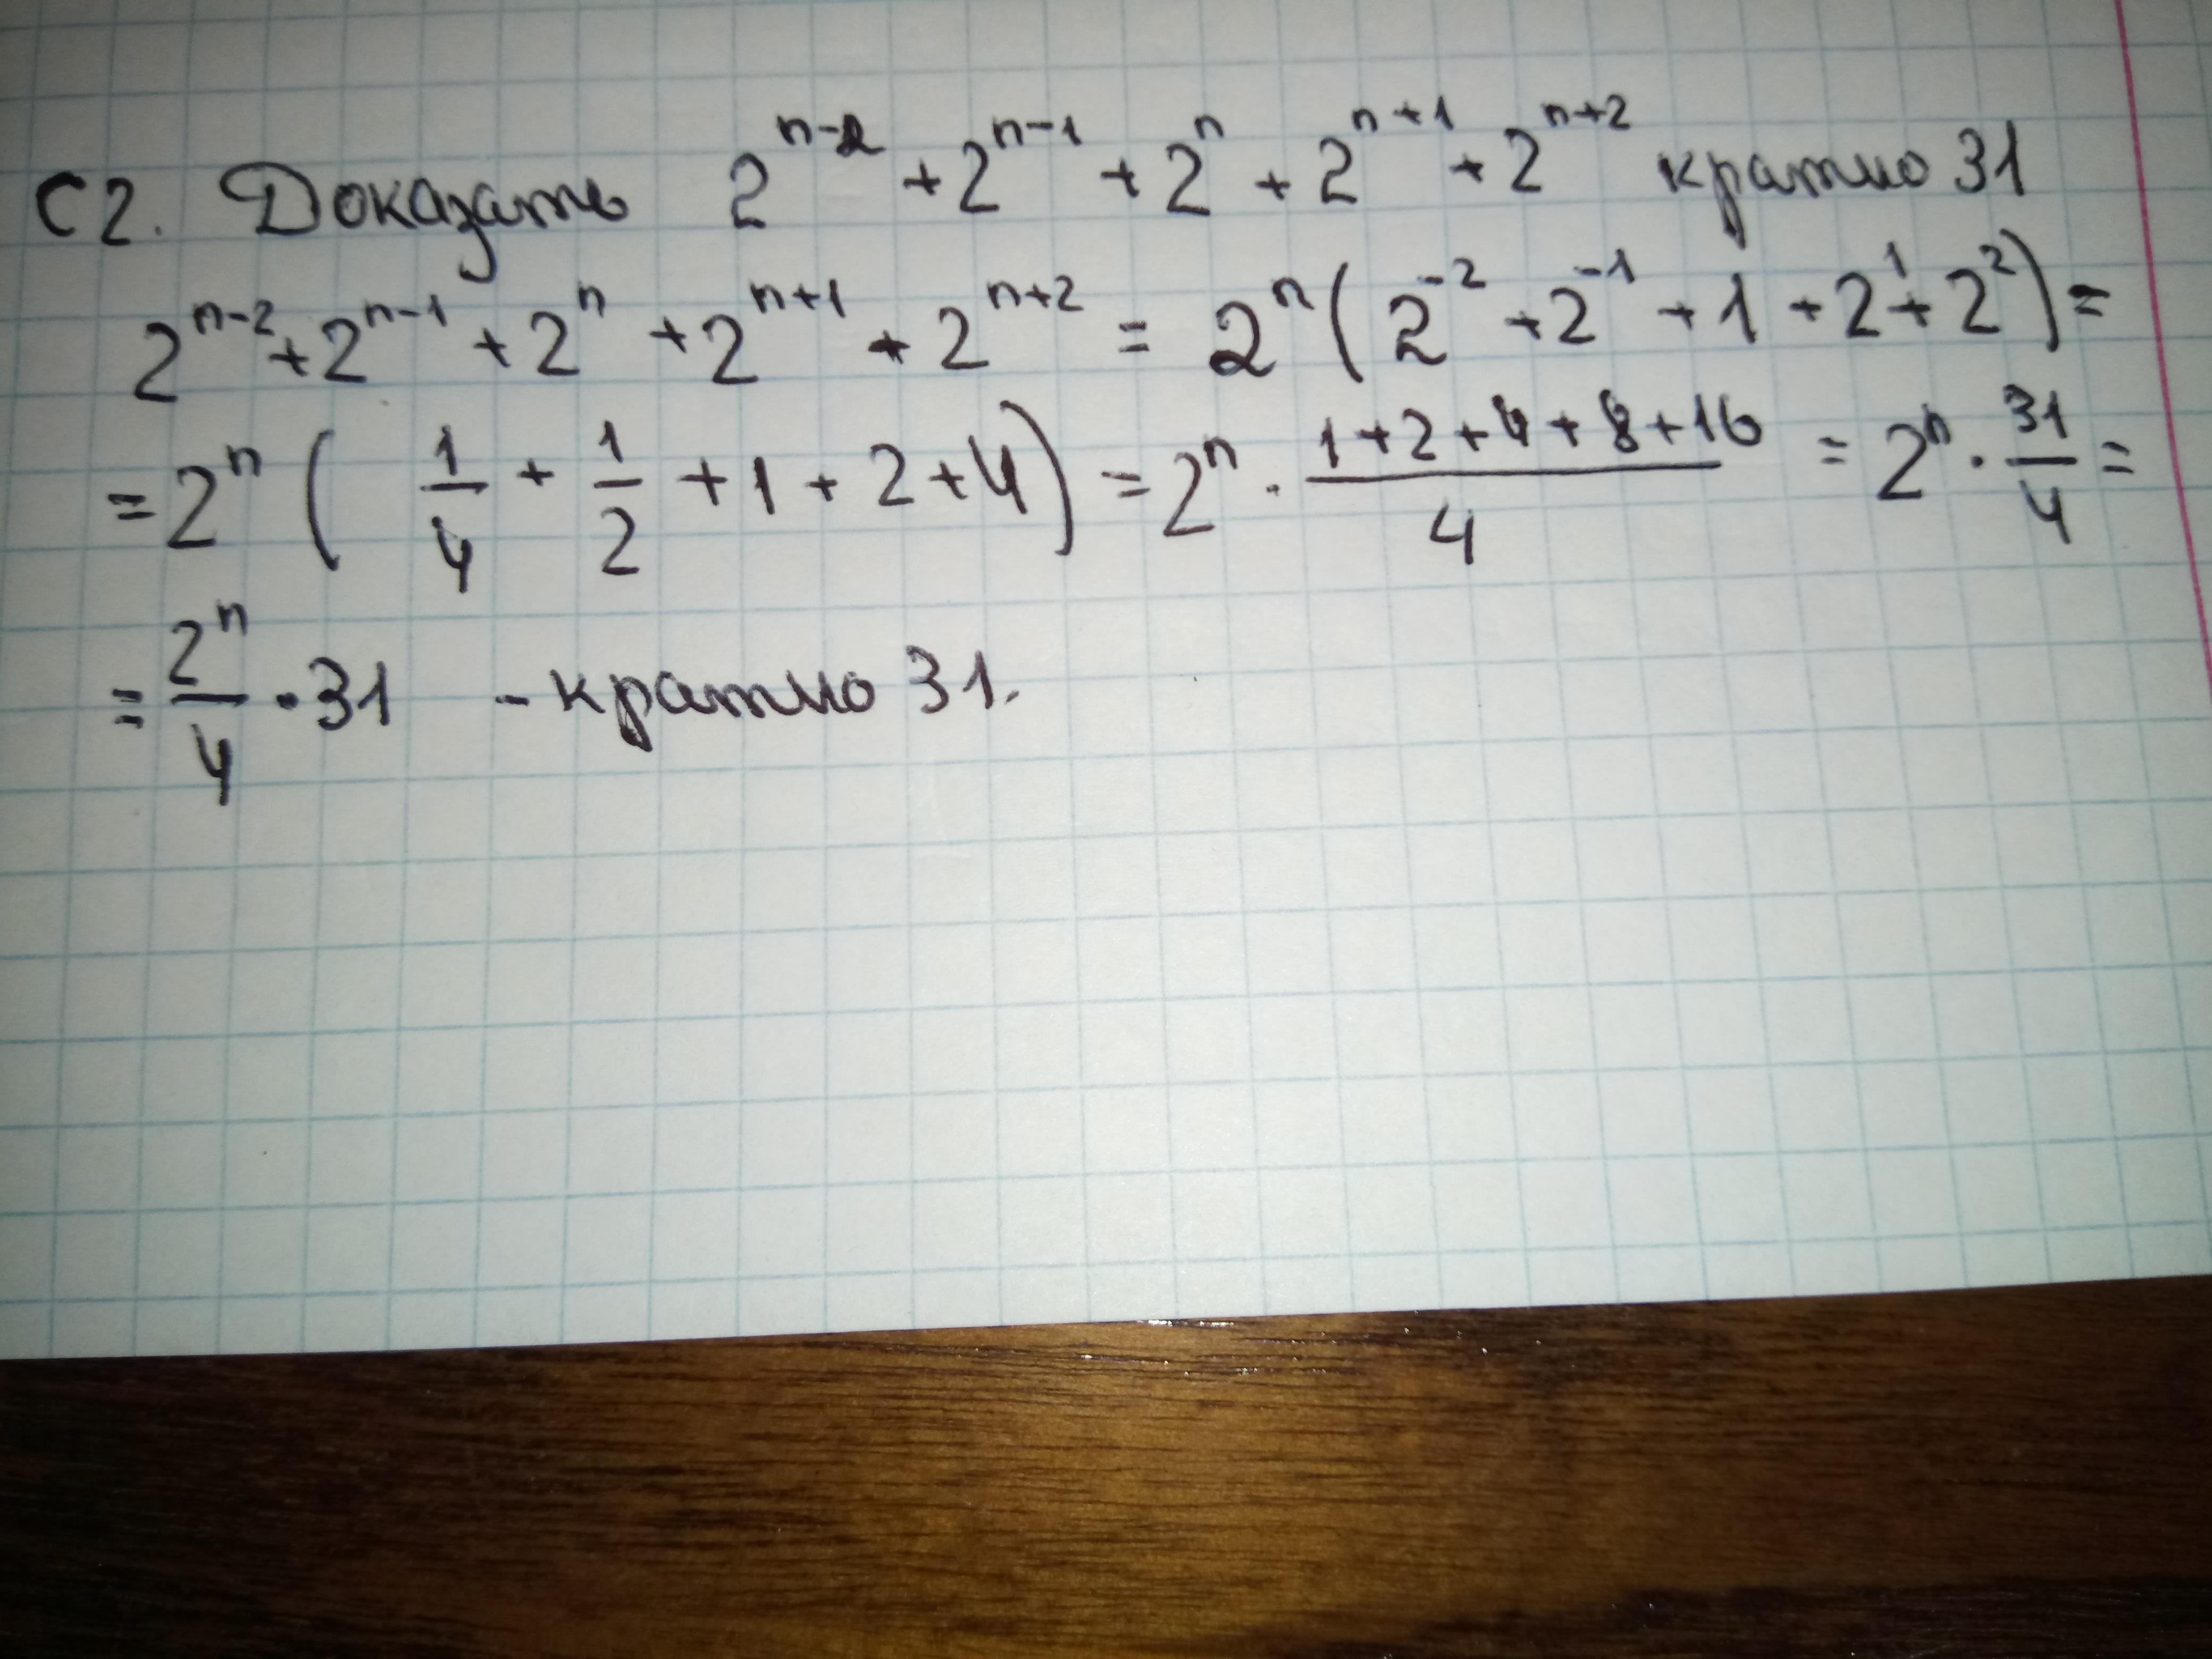 C2. Доказать 2^{n-2} + 2^{n-1} + 2^n + 2^{n+1} + 2^{n+2} кратно 31
2^{n-2} + 2^{n-1} + 2^n + 2^{n+1} + 2^{n+2} = 2^n (2^{-2} + 2^{-1} + 1 + 2^1 + 2^2) =
= 2^n (1/4 + 1/2 + 1 + 2 + 4) = 2^n · (1+2+4+8+16)/4 = 2^n · 31/4 =
= 2^n/4 · 31 - кратно 31.